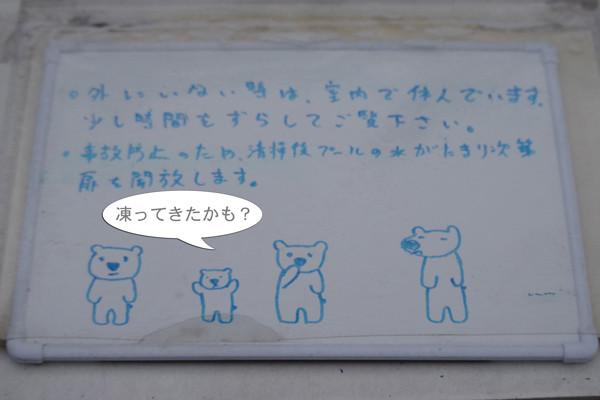 ○外にいない時は、室内で休んでいます。
少し時間をずらしてご覧下さい。
●事故防止のため、清掃後プールの水がたまり次第
扉を開放します。
凍ってきたかも？